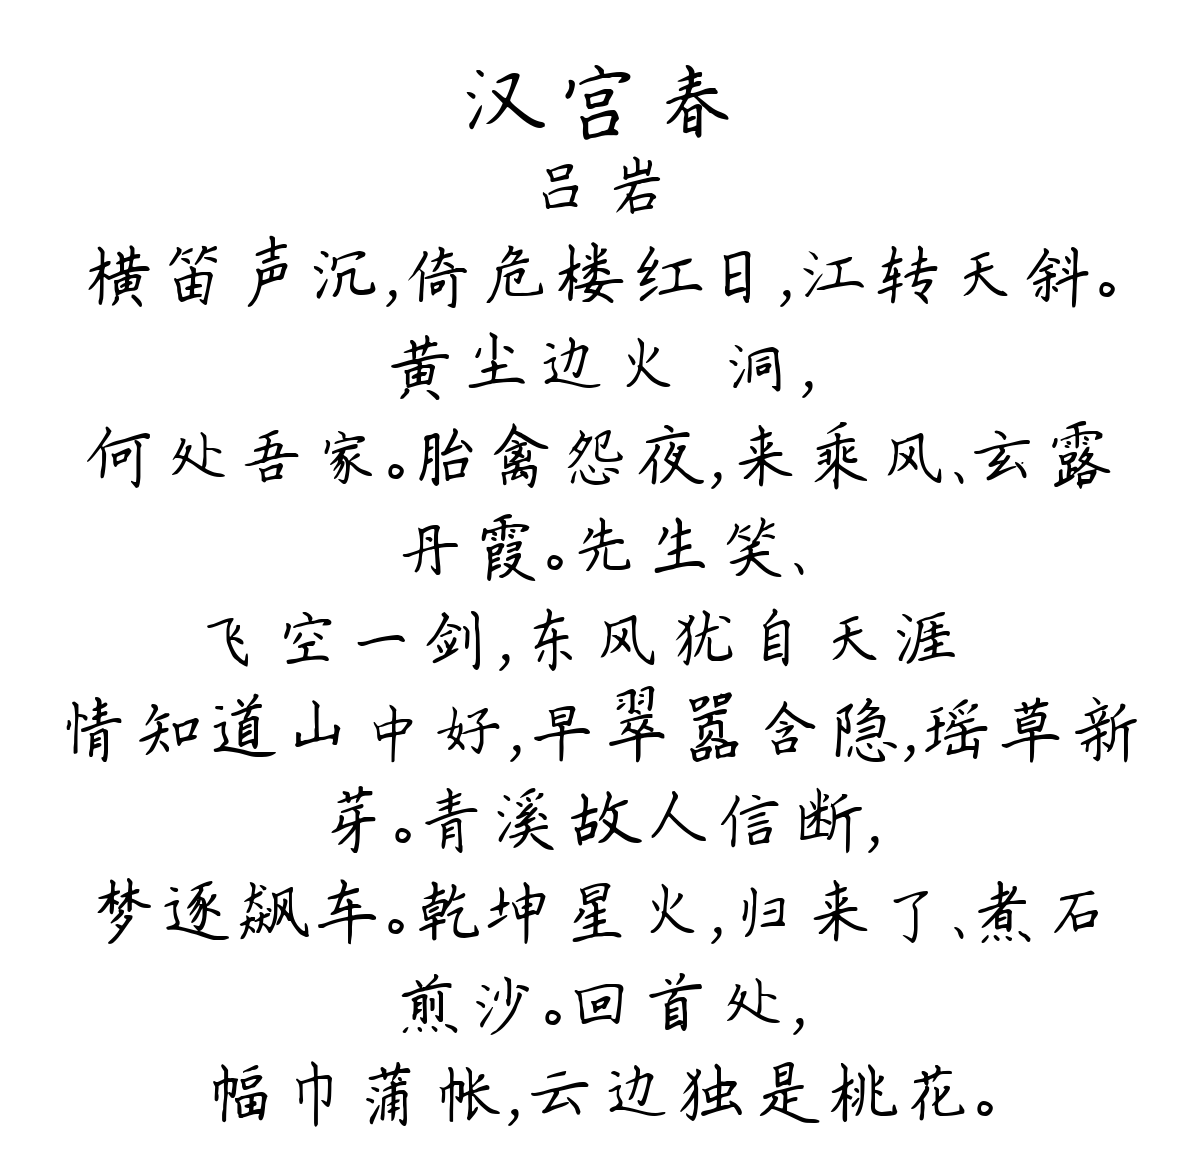 汉宫春
吕岩
横笛声沉,倚危楼红日,江转天斜。
黄尘边火 洞,
何处吾家。胎禽怨夜,来乘风、玄露
丹霞。先生笑、
飞空一剑,东风犹自天涯
情知道山中好,早翠嚣含隐,瑶草新
芽。青溪故人信断,
梦逐飙车。乾坤星火,归来了、煮石
煎沙。回首处,
幅巾蒲帐,云边独是桃花。